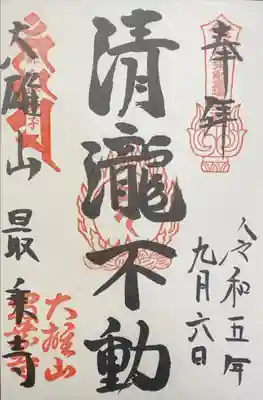 奉拝
令和五年
九月六日
清瀧不動
大雄山 最乗寺
大雄山